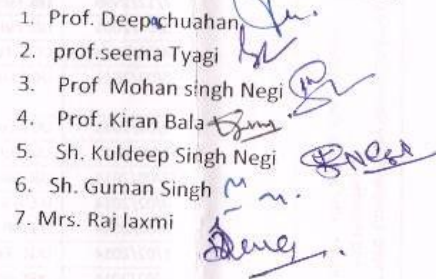 1. Prof. Deepachuahan
2. prof.seema Tyagi
3. Prof Mohan singh Negi
4. Prof. Kiran Bala
5. Sh. Kuldeep Singh Negi
6. Sh. Guman Singh
7. Mrs. Raj laxmi